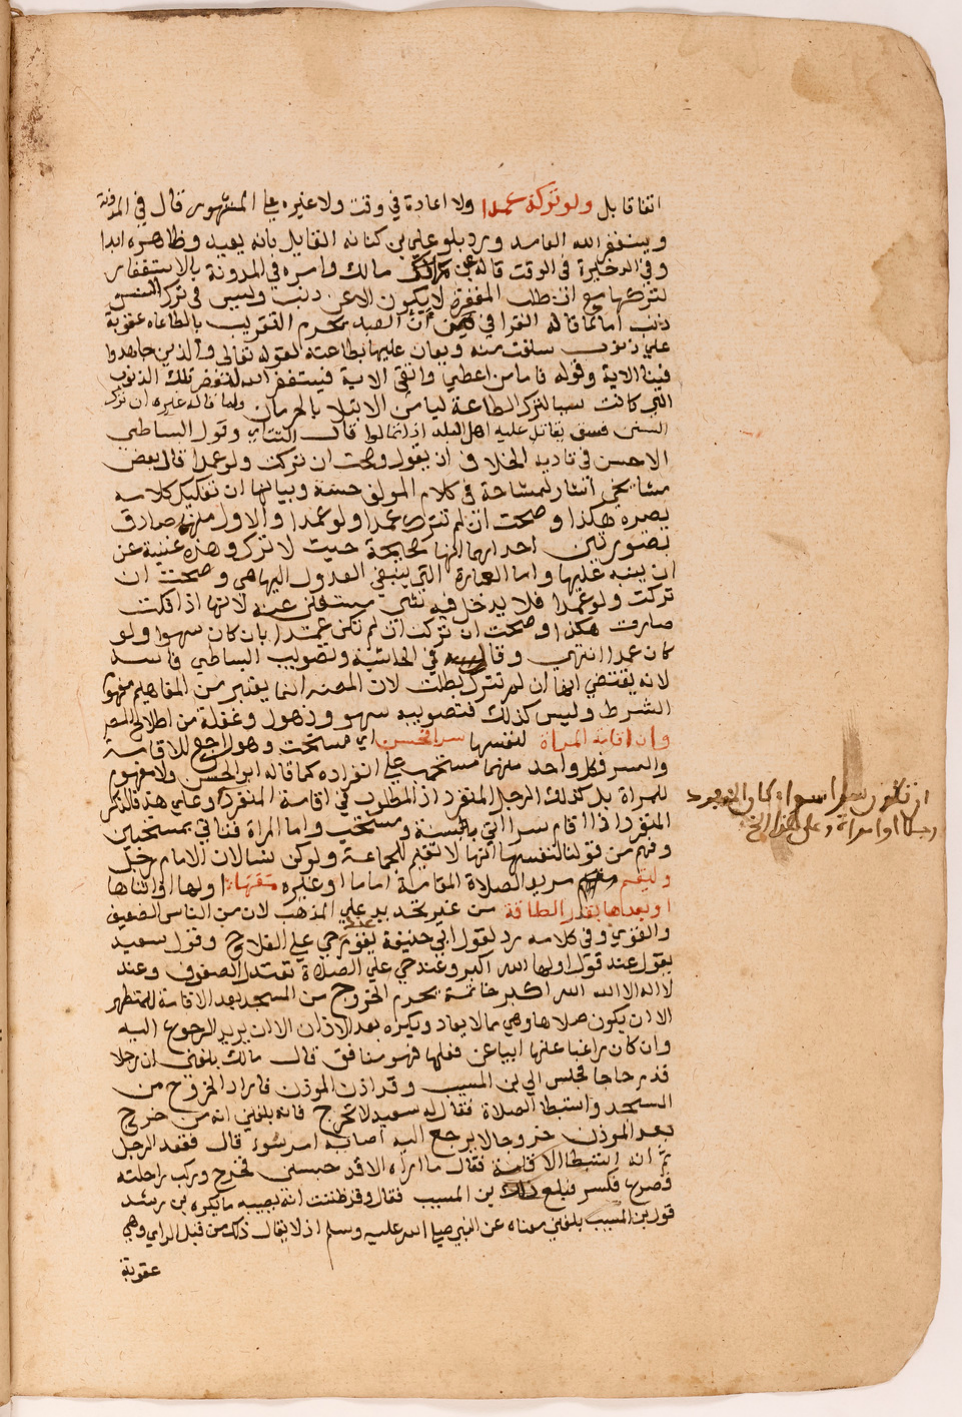 اتفاقا بل ولو تركه عمدا ولا اعادة في وقت ولا غيره علي المشهور قال في المدونة
ويستغفر الله العامد ورد بلو علي بن كنانة القايل بانه يعيد وظاهره ابدا
وفي الدخيرة في الوقت قاله عن مالك وامره في المدونة بالاستغفار
لتركها مع ان طلب المغفرة لا يكون الا عن ذنب وليس في ترك السنن
ذنب اما لما قاله القرافي ان العبد يحرم التقريب بالطاعات عقوبة
علي ذنوب سلفت منه ويعان عليها بطاعته لقوله تعالي والذين جاهدوا
فينا الاية وقوله فاما من اعطي واتقي الاية فيستغفر الله لتغفر تلك الذنوب
التي كانت سببا لترك الطاعة ليامن الابتلا بالحرمان ولما قاله غيره ان ترك
السنن فسق يقاتل عليه اهل البلد اذا تمالوا قال التتاي وقول البساطي
الاحسن في تادية الخلاف ان يقول وصحت ان تركت ولو عمدا قال بعض
مشايخي اشار لمشاحة في كلام المولف حسنة وبيانها ان تفكيك كلامه
يصيره هكذا وصحت ان لم تترك عمدا ولو عمدا والاول منهما صادق
بصورتين احداهما انها صحيحة حيث لا ترك وهذه غنية عن
ان ينبه عليها واما العبارة التي ينبغي العدول اليها هي وصحت ان
تركت ولو عمدا فلا يدخل فيه شي مستغني عنه لانها اذا فكت
صارت هكذا وصحت ان تركت ان لم تكن عمدا بان كان سهوا ولو
كان عمدا انتهي وقال في الحاشية وتصويب البساطي فاسد
لانه يقتضي انها ان لم تترك بطلت لان المصنف انما يعتبر من المفاهيم مفهوم
الشرط وليس كذلك فتصويبه سهو وذهول وغفلة من اطلاح المص
وان اقامت المراة لنفسها سرا فحسن اي مستحب وهو راجع للاقامة
والسر فكل واحد منهما مستحب علي انفراده كما قاله ابو الحسن ولا مفهوم
للمراة بل كذلك الرجل المنفرد اذ المطلوب في اقامة المنفرد وعلي هذا فالذكر
المنفرد اذا اقام سرا اتي بسنة ومستحب واما المراة فتاتي بمستحبين
وفهم من قولنا لنفسها انها لا تقيم للجماعة ولو كن نسا لان الامام رجل
وليقم مريد الصلاة المقامة اماما او غيره معها اولها او اثناها
او بعدها بقدر الطاقة من غير تحديد علي المذهب لان من الناس الضعيف
والقوي وفي كلامه رد لقول ابي حنيفة يقوم عند حي علي الفلاح وقول سعيد
يقول عند قول اولها الله اكبر وعند حي علي الصلاة تعتدل الصفوف وعند
لا اله الا الله الله اكبر خاتمة يحرم الخروج من المسجد بعد الاقامة للمتطهر
الا ان يكون صلاها وهي مما لا يعاد ويكره بعد الاذان الا ان يريد الرجوع اليه
وان كان راغبا عنها ابيا عن فعلها فهو منافق قال مالك بلغني ان رجلا
قدم حاجا فجلس الي بن المسيب وقد اذن الموذن فاراد الخروج من
المسجد واستبطا الصلاة فقال له سعيد لا تخرج فانه بلغني انه من خرج
بعد الموذن خروجا لا يرجع اليه اصابه امر سوء قال فقعد الرجل
ثم انه استبطا الاقامة فقال ما اراه الا قد حبسني فخرج وركب راحلته
فصرع فكسر فبلغ ذلك بن المسيب فقال وقد ظننت انه يصيبه ما يكره بن رشد
قول بن المسيب بلغني معناه عن النبي صلي الله عليه وسلم اذ لا يقال ذلك من قبل الراي وهي
عقوبة
ان تكون سرا سواء كان المنفرد
رجلا او امراة وعلي هذا الخ